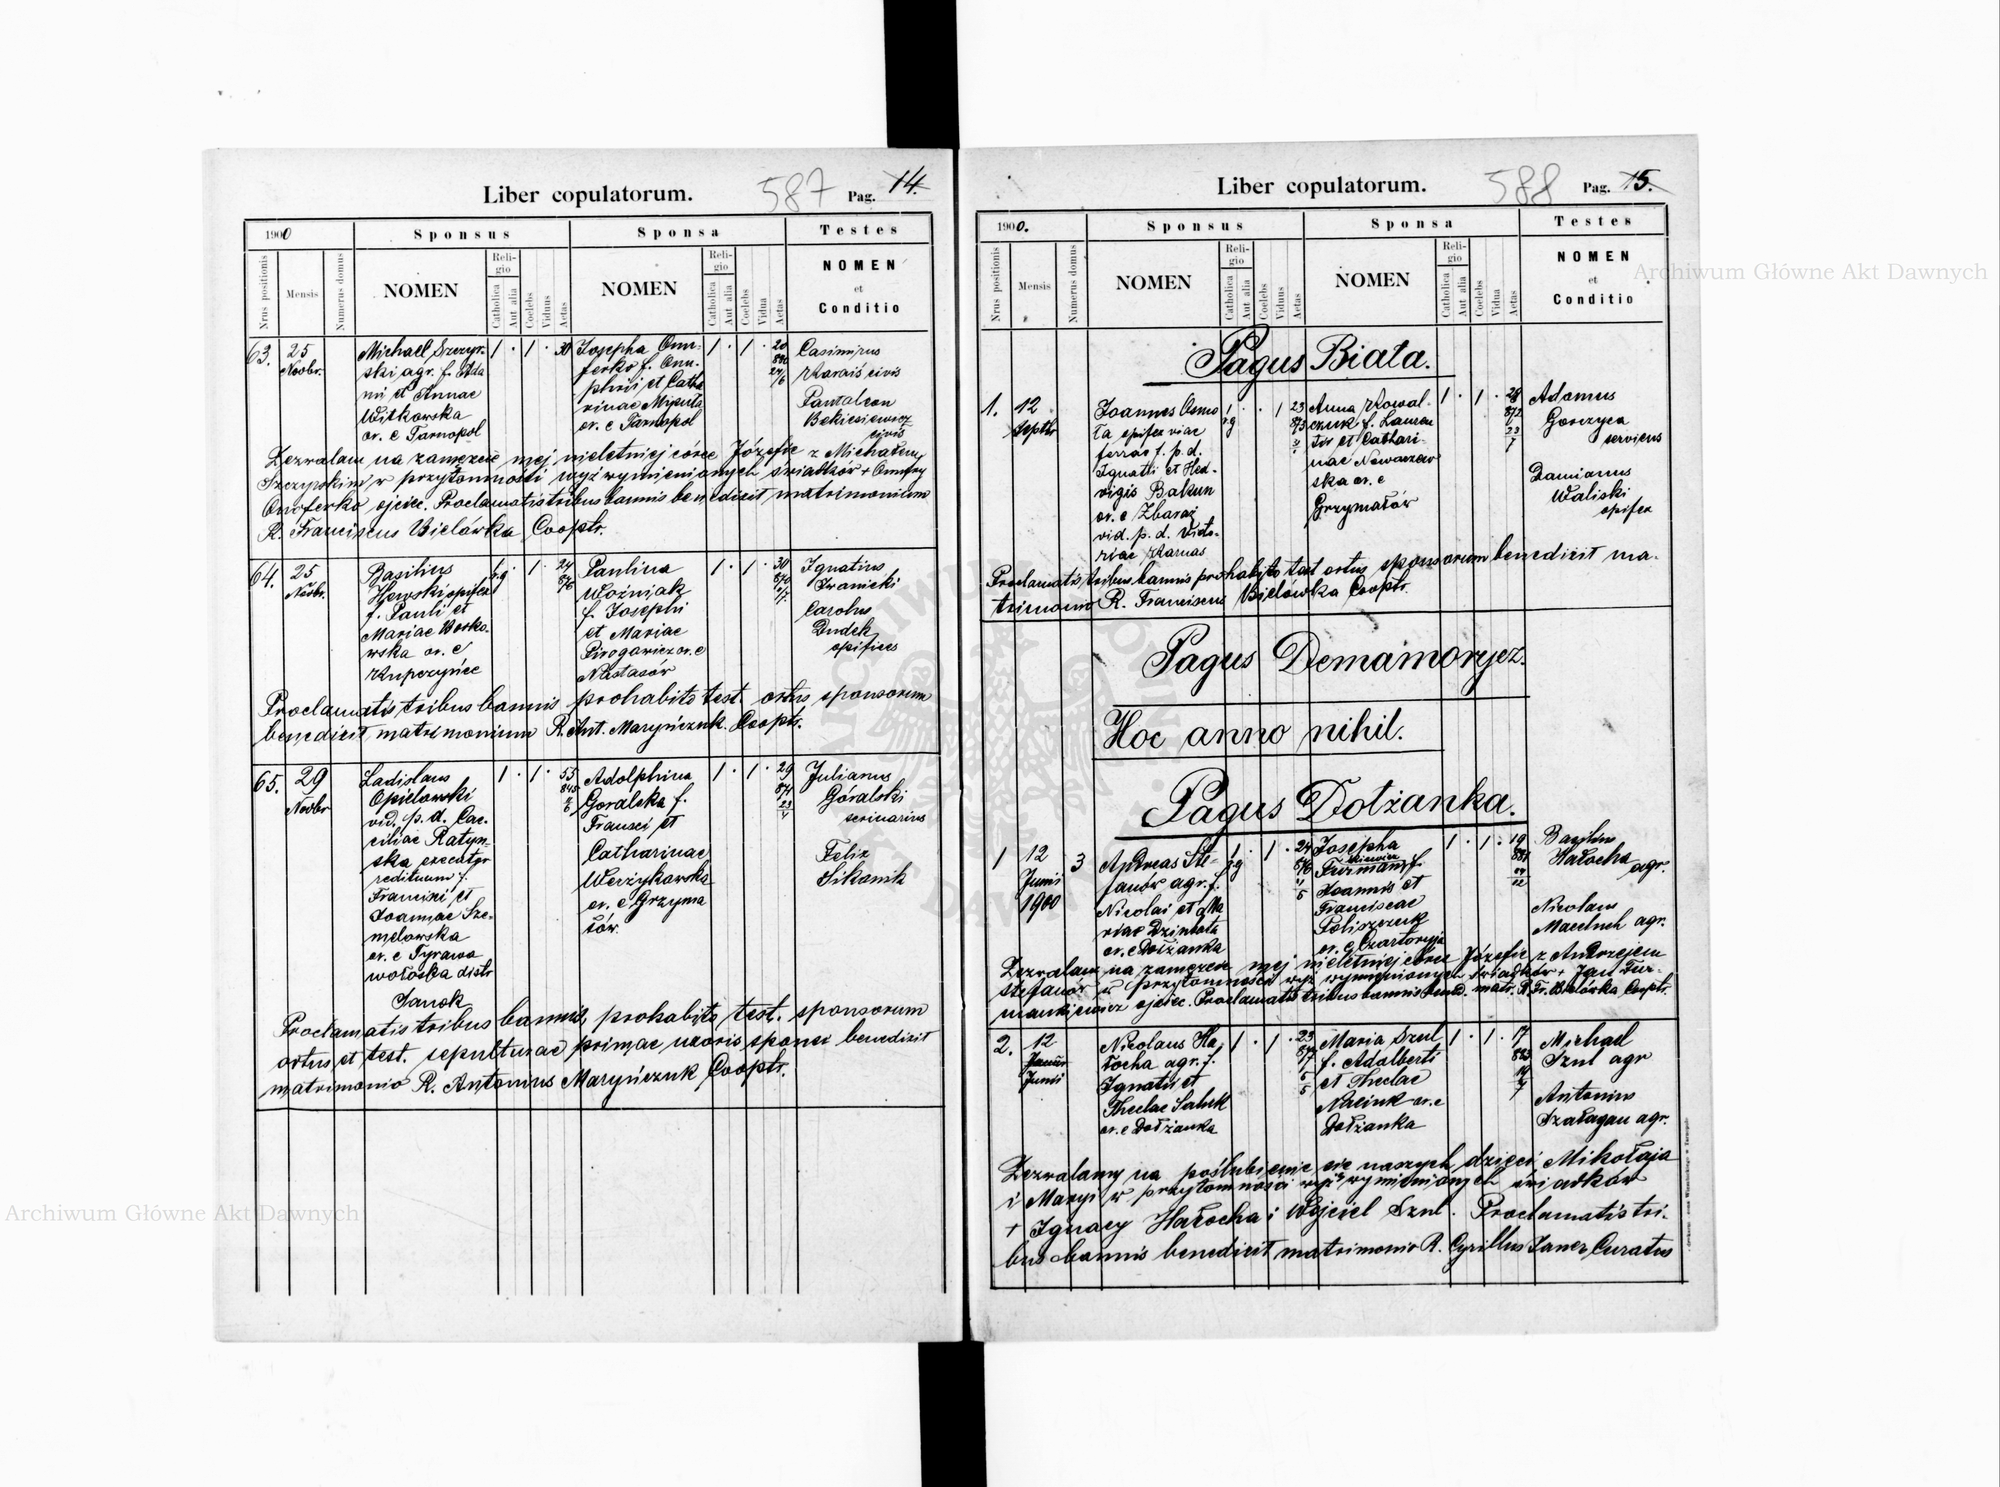 Liber copulatorum.
587
Pag. 14.
1900
Sponsus
Sponsa
Testes
Nrus positionis
Mensis
Numerus domus
NOMEN
Religio
Catholica
Aut alia
Coelebs
Viduus
Aetas
NOMEN
Religio
Catholica
Aut alia
Coelebs
Vidua
Aetas
NOMEN
et
Conditio
63.
25
Novbr.
Michael Szczyp-
ski agr. f. Ada
mi et Annae
Witkowska
or. e Tarnopol
1 . 1 . 30
Josepha Onu-
ferko f. Onu-
phrii et Catha
rinae Mykuta
or. e Tarnopol
1 . 1 .
20
880
24/6
Casimirus
Karaiś civis
Pantaleon
Bekiesiewicz
civis
Zezwalam na zamęzcie mej nieletniej córce Józefie z Michałem
Szczypskim w przytomności wyż wymienianych świadków + Onufry
Onuferko ojciec. Proclamatis tribus bannis benedixit matrimonium
R. Franciscus Bielówka Cooptr.
64.
25
Novbr.
Basilius
Hewski opifex
f. Pauli et
Mariae Borko-
wska or. e
Kupczyńce
r.g . 1 .
24
876
Paulina
Woźniak
f. Josephi
et Mariae
Pirogowicz or. e
Nastasów
1 . 1 .
30
870
Ignatius
Iwanicki
Carolus
Dudek
opifices
Proclamatis tribus bannis prohabito test. ortus sponsorum
benedixit matrimonium R. Ant. Maryńczuk. Cooptr.
65.
29
Novbr
Ladislaus
Opielowski
vid. p. d. Cae-
ciliae Ratyn-
ska execator
redituum f.
Francisci et
Joannae Sze-
melowska
or. e Tyrawa
wołoska distr
Sanok
1 . 1 .
55
845
Adolphina
Goralska f.
Francisci et
Catharinae
Werzykowska
or. e Grzyma
łów.
1 . 1 .
29
871
23
Julianus
Góralski
scrinarius
Felix
Sikonik
Proclamatis tribus bannis, prohabito test. sponsorum
ortus et test. sepulturae primae uxoris sponsi benedixit
matrimonio R. Antonius Maryńczuk Cooptr.
Liber copulatorum.
588
Pag. 15.
1900.
Sponsus
Sponsa
Testes
Nrus positionis
Mensis
Numerus domus
NOMEN
Religio
Catholica
Aut alia
Coelebs
Viduus
Aetas
NOMEN
Religio
Catholica
Aut alia
Coelebs
Vidua
Aetas
NOMEN
et
Conditio
Pagus Biała.
1.
12
Septbr
Joannes Osmo
ła opifex viae
ferrae f. p. d.
Ignatii et Hed-
vigis Bakun
or. e Zbaraż
vid. p. d. Victo-
riae Karnas
1 r.g . . 1
23
875
Anna Kowal-
czuk f. Lauren
tii et Cathari-
nae Nowarzew
ska or. e
Grzymałów
1 . 1 .
28
872
23
7
Adamus
Gorzyca
servicus
Damianus
Waliski
opifex
Proclamatis tribus bannis prohabito test ortus sponsorum benedixit ma-
trimonio R. Franciscus Bielówka Cooptr.
Pagus Demamorycz.
Hoc anno nihil.
Pagus Dołżanka.
1
12
Junii
1900
3
Andreas Ste-
fanów agr. f.
Nicolai et Ma
riae Dziubata
or. e Dołżanka
1 r.g . 1 .
24
876
Josepha
Furman f.
kiewicz
Joannis et
Franciscae
Poliszczuk
or. e Czartoryja
1 . 1 .
19
881
Basilius
Hałocha
agr.
Nicolaus
Macelnch agr.
Zezwalam na zamęzcie mej nieletniej córce Józefie z Andrzejem
Stefanów w przytomności wyż wymienionych świadków + Jan Fur-
mankiewicz ojciec. Proclamatis tribus bannis bened. matr. R. Fr. Bielówka Cooptr.
2.
12
Junii
Nicolaus Ha
łocha agr. f.
Ignatii et
Theclae Saluk
or. e Dołżanka
1 . 1 .
23
877
Maria Szul
f. Adalberti
et Theclae
Naciuk or. e
Dołżanka
1 . 1 .
17
883
Michael
Szul agr
Antonius
Szałagan agr.
Zezwalamy na poślubienie się naszych dzieci Mikołaja
i Maryi w przytomności wyż wymienionych świadków
+ Ignacy Hałocha i Wojciel Szul. Proclamatis tri-
bus bannis benedixit matrimonio R. Cyrillus Janer Curatus
Archiwum Główne Akt Dawnych
Archiwum Główne Akt Dawnych